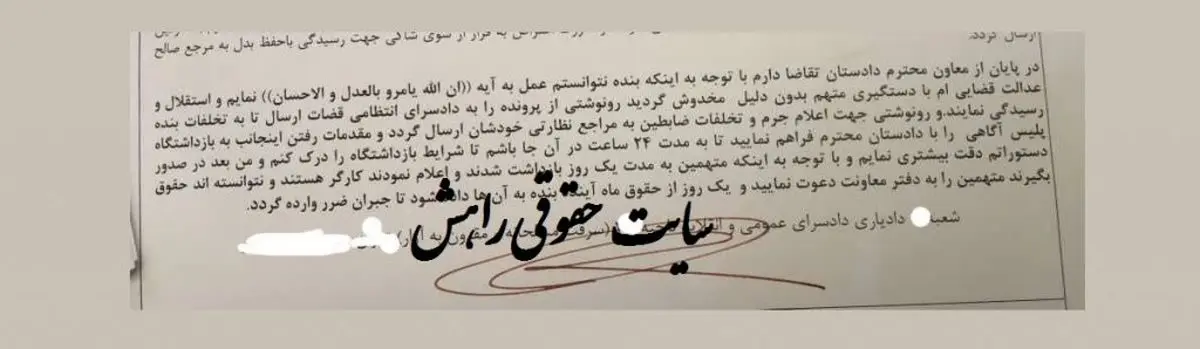 ارسال گردد.
به قرار از سوی شاکی جهت رسیدگی باحفظ بدل به مرجع صالح
در پایان از معاون محترم دادستان تقاضا دارم با توجه به اینکه بنده نتوانستم عمل به آیه ((ان الله یامرو بالعدل و الاحسان)) نمایم و استقلال و
عدالت قضایی ام با دستگیری متهم بدون دلیل مخدوش گردید رونوشتی از پرونده را به دادسرای انتظامی قضات ارسال تا به تخلفات بنده
رسیدگی نمایند.و رونوشتی جهت اعلام جرم و تخلفات ضابطین به مراجع نظارتی خودشان ارسال گردد و مقدمات رفتن اینجانب به بازداشتگاه
پلیس آگاهی را با دادستان محترم فراهم نمایید تا به مدت ۲۴ ساعت در آن جا باشم تا شرایط بازداشتگاه را درک کنم و من بعد در صدور
دستوراتم دقت بیشتری نمایم و با توجه به اینکه متهمین به مدت یک روز بازداشت شدند و اعلام نمودند کارگر هستند و نتوانسته اند حقوق
بگیرند متهمین را به دفتر معاونت دعوت نمایید و یک روز از حقوق ماه آینده بنده به آن ها داده شود تا جبران ضرر وارده گردد.
دادیاری دادسرای عمومی و
سایت حقوقی راهش